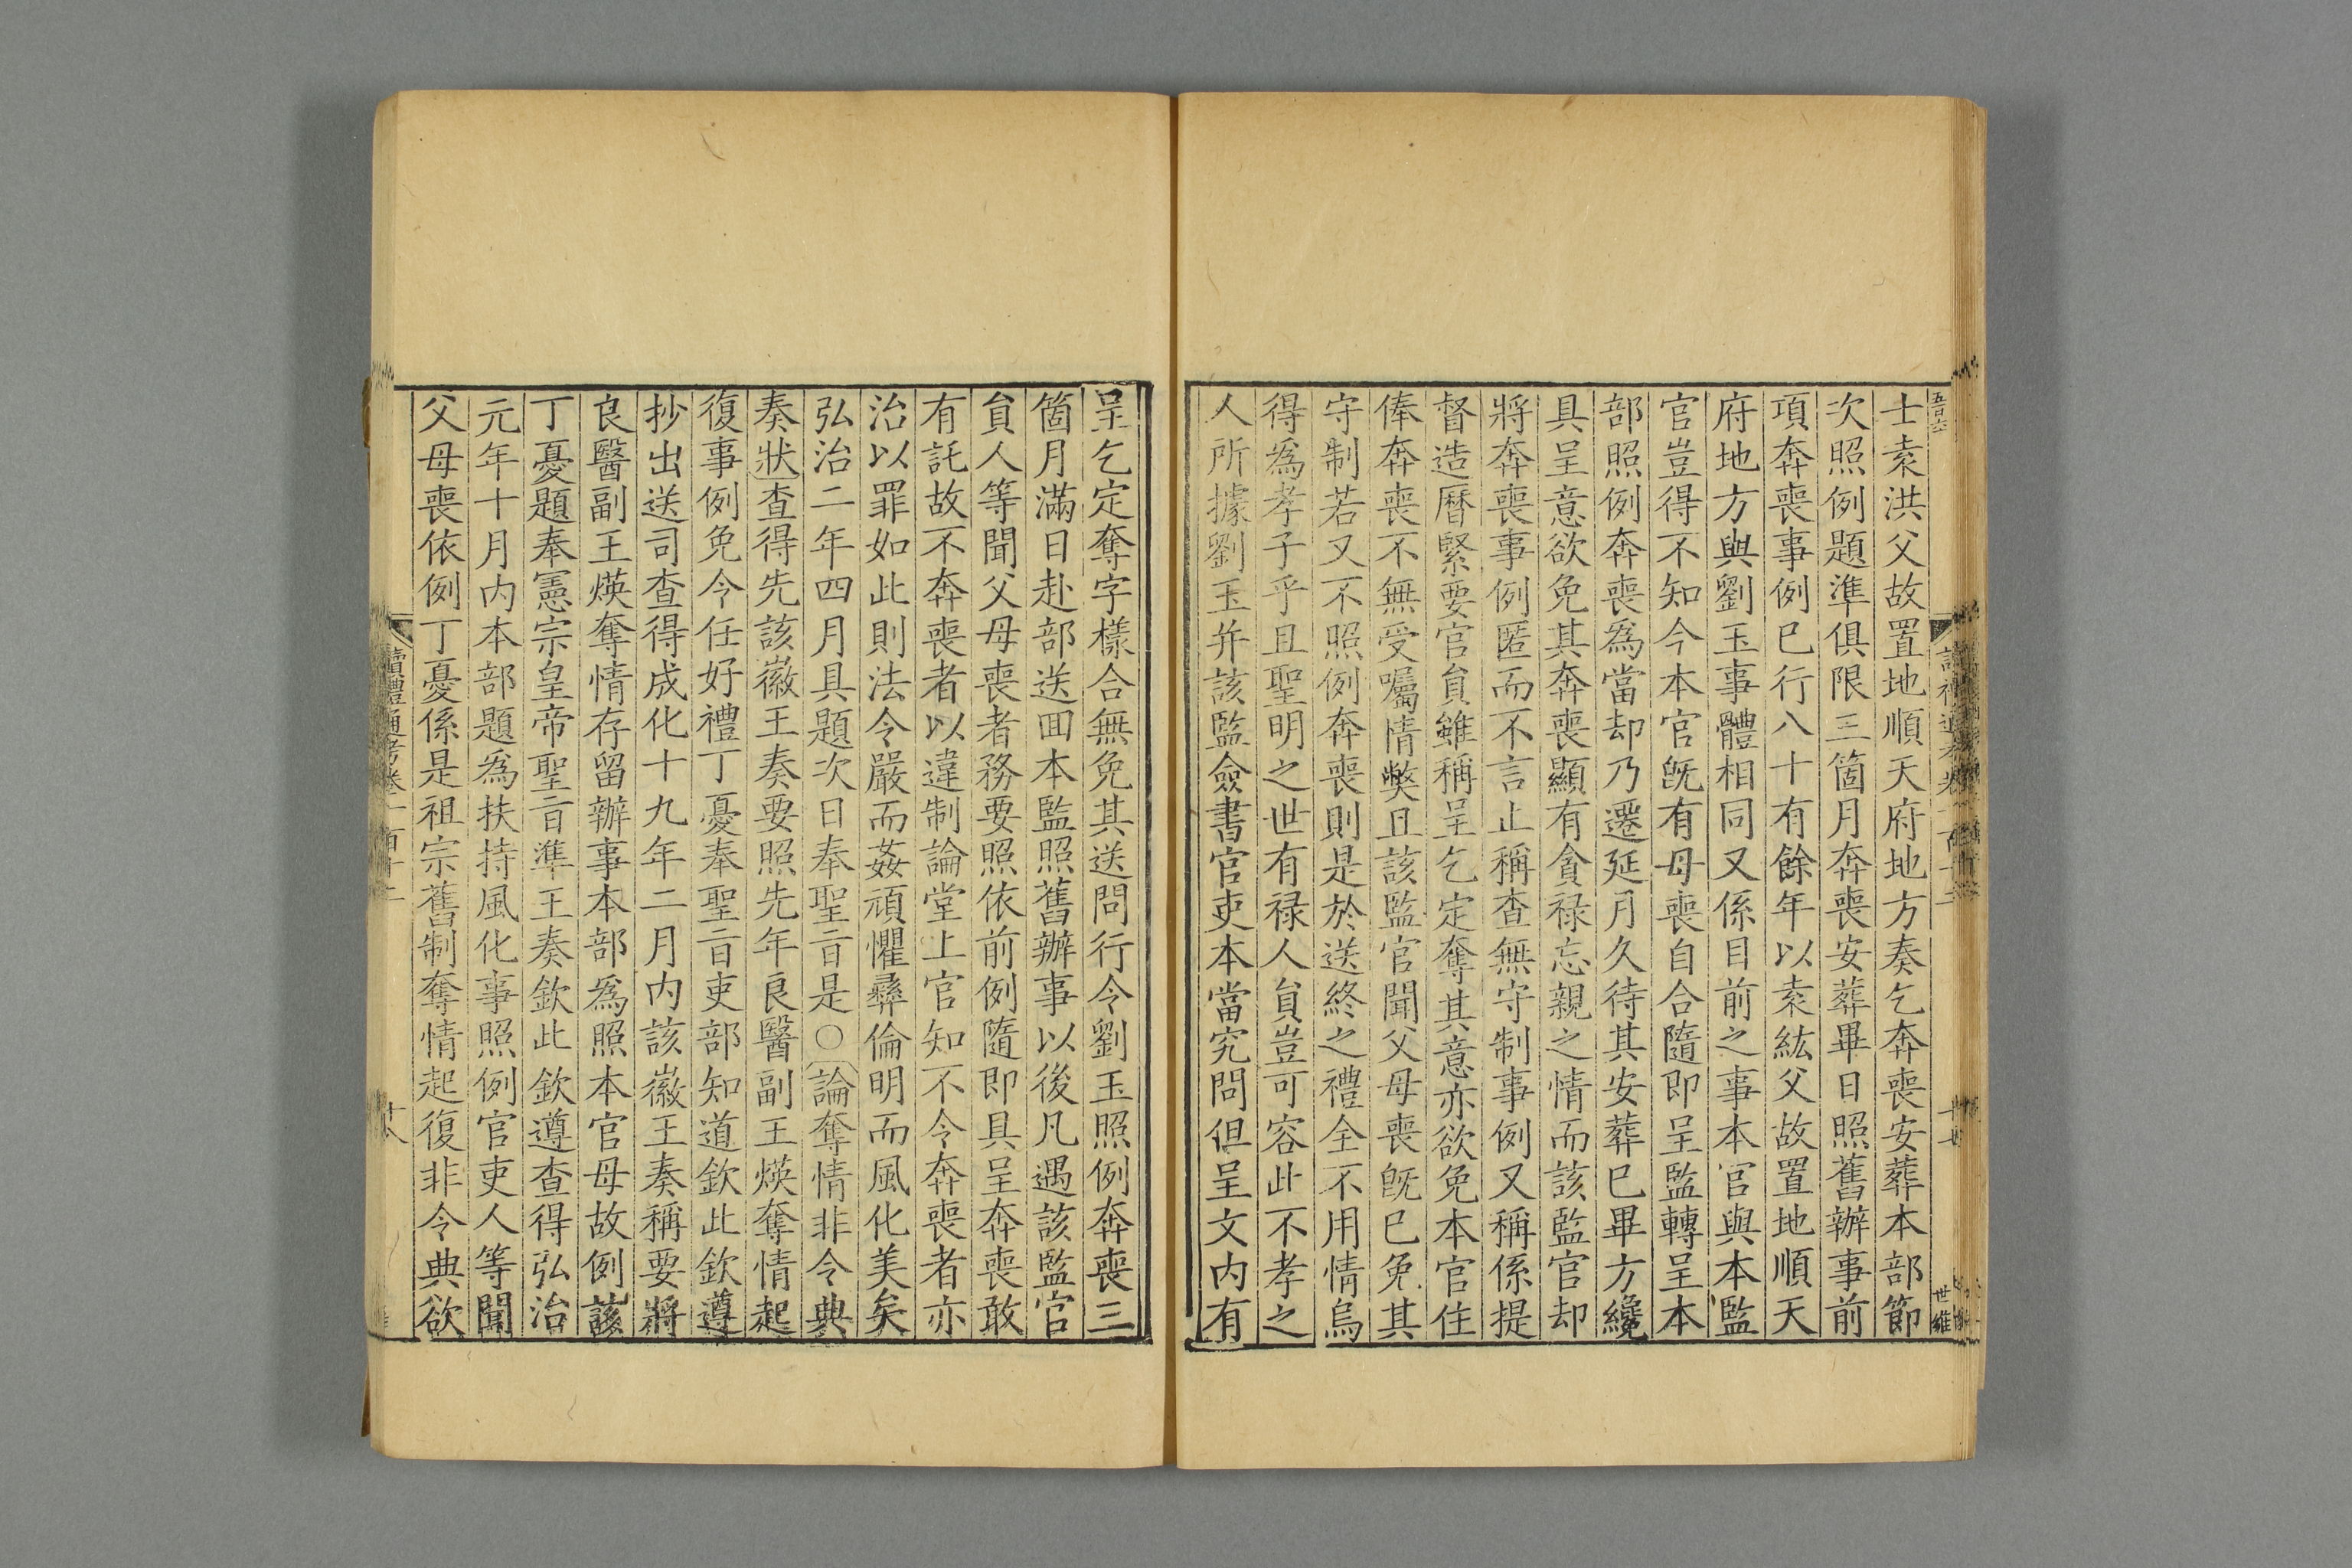 士素洪父故置地順天府地方奏乞奔喪安葬本部節
次照例題準俱限三箇月奔喪安葬畢日照舊辦事前
項奔喪事例已行八十有餘年以素紘父故置地順天
府地方與劉玉事體相同又係目前之事本官與本監
官豈得不知今本官既有母喪自合隨即呈監轉呈本
部照例奔喪爲當却乃遷延月久待其安葬已畢方纔
具呈意欲免其奔喪顯有貪禄忘親之情而該監官却
將奔喪事例匿而不言止稱查無守制事例又稱係提
督造曆緊要官員雖稱呈乞定奪其意亦欲免本官住
俸奔喪不無受囑情獘且該監官聞父母喪既已免其
守制若又不照例奔喪則是於送終之禮全不用情烏
得爲孝子乎且聖明之世有禄人員豈可容此不孝之
人所據劉玉并該監僉書官吏本當究問但呈文内有
呈乞定奪字樣合無免其送問行令劉玉照例奔喪三
箇月滿日赴部送回本監照舊辦事以後凡遇該監官
員人等聞父母喪者務要照依前例隨即具呈奔喪敢
有託故不奔喪者以違制論堂上官知不令奔喪者亦
治以罪如此則法令嚴而姦頑懼彝倫明而風化美矣
弘治二年四月具題次日奉聖旨是〇論奪情非令典
奏狀查得先該徽王奏要照先年良醫副王煐奪情起
復事例免令任好禮丁憂奉聖旨吏部知道欽此欽遵
抄出送司查得成化十九年二月内該徽王奏稱要將
良醫副王煐奪情存留辦事本部爲照本官母故例該
丁憂題奉憲宗皇帝聖旨準王奏欽此欽遵查得弘治
元年十月内本部題爲扶持風化事照例官吏人等聞
父母喪依例丁憂係是祖宗舊制奪情起復非令典欲
讀禮通考卷一百十二
十八
世維